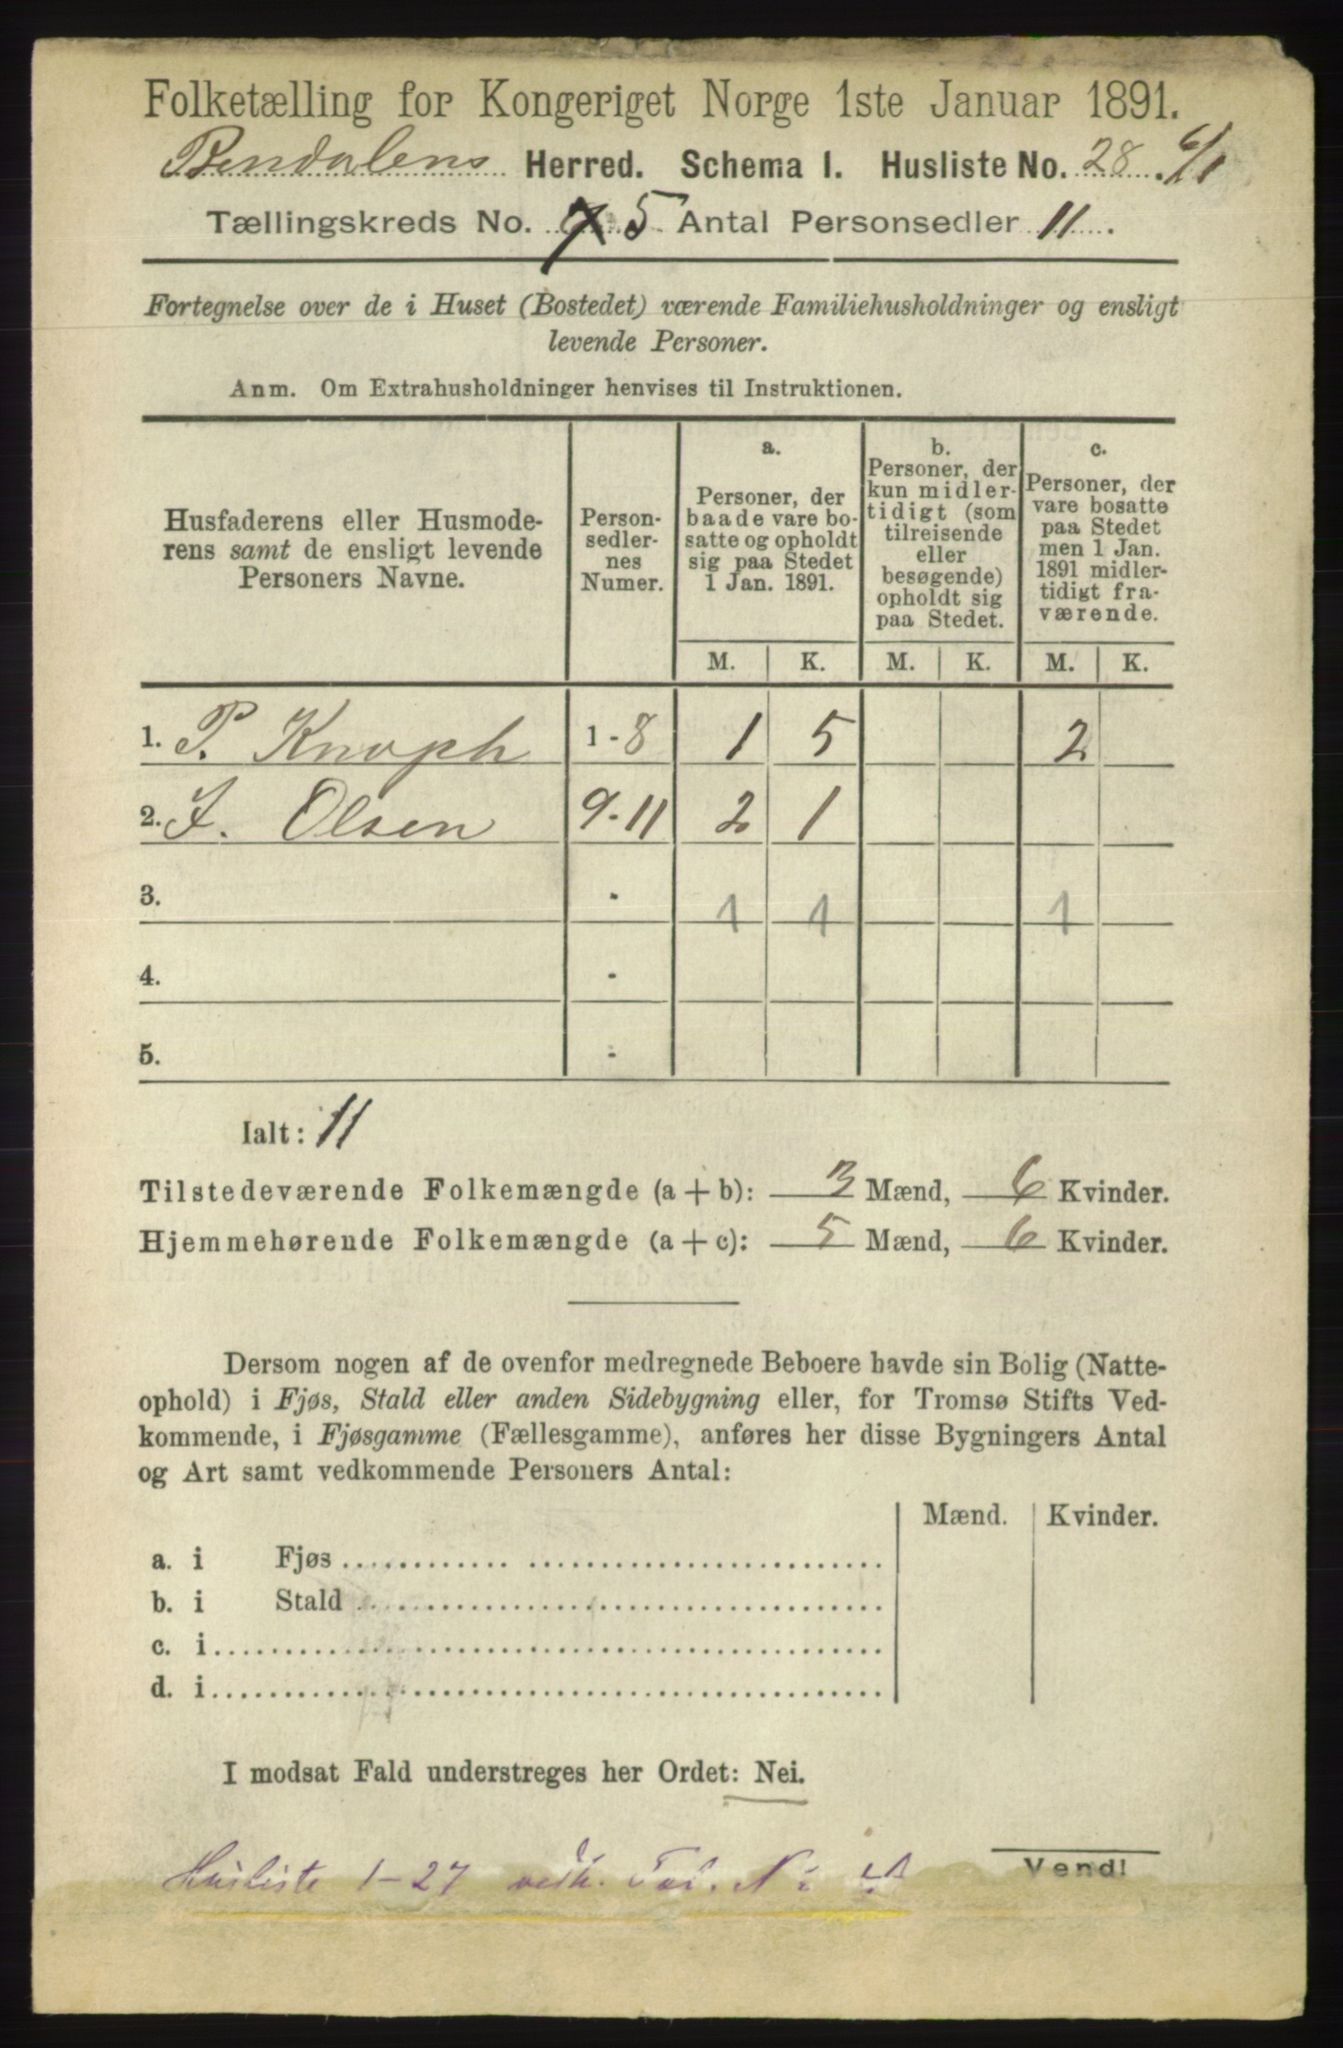 Folketælling for Kongeriget Norge 1ste Januar 1891.
Herred. Schema I. Husliste No. 28
Tællingskreds No. 5 Antal Personsedler 11.
Fortegnelse over de i Huset (Bostedet) værende Familiehusholdninger og ensligt
levende Personer.
Anm. Om Extrahusholdninger henvises til Instruktionen.
Husfaderens eller Husmode-
rens samt de ensligt levende
Personers Navne.
Person-
sedler-
nes
Numer.
a.
Personer, der
baade vare bo-
satte og opholdt
sig paa Stedet
1 Jan. 1891.
b.
Personer, der
kun midler-
tidigt (som
tilreisende
eller
besøgende)
opholdt sig
paa Stedet.
c.
Personer, der
vare bosatte
paa Stedet
men 1 Jan.
1891 midler-
tidigt fra-
værende.
M. K. M. K. M. K.
1. P. Knoph 1-8 1 5 2
2. J. Olsen 9-11 2 1
3. - 1 1 1
4. -
5. -
Ialt: 11
Tilstedeværende Folkemængde (a + b): 3 Mænd, 6 Kvinder.
Hjemmehørende Folkemængde (a + c): 5 Mænd, 6 Kvinder.
Dersom nogen af de ovenfor medregnede Beboere havde sin Bolig (Natte-
ophold) i Fjøs, Stald eller anden Sidebygning eller, for Tromsø Stifts Ved-
kommende, i Fjøsgamme (Fællesgamme), anføres her disse Bygningers Antal
og Art samt vedkommende Personers Antal:
Mænd. Kvinder.
a. i Fjøs
b. i Stald
c. i
d. i
I modsat Fald understreges her Ordet: Nei.
Husliste 1-27 vedk.
Vend!